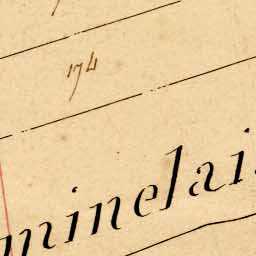 174
minelai